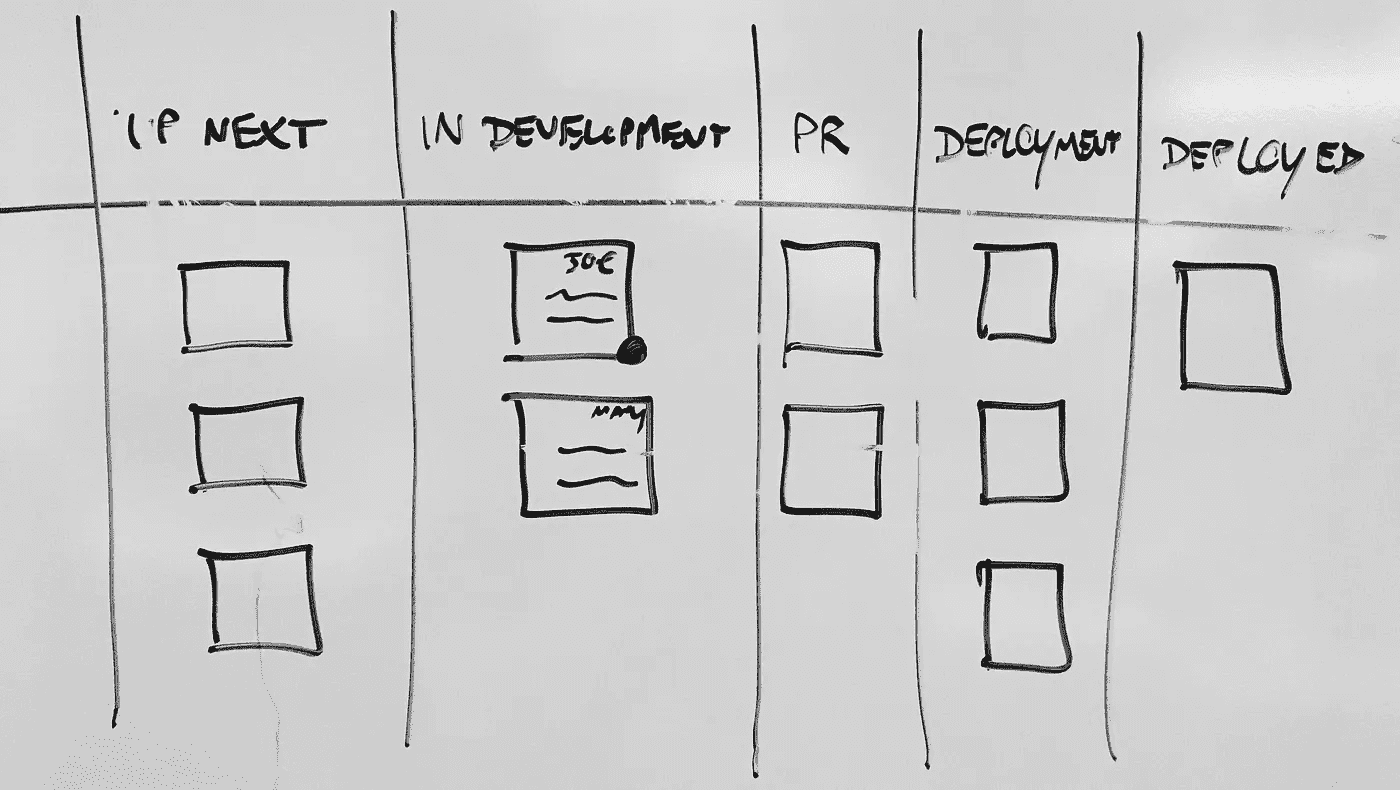 UP NEXT
IN DEVELOPMENT
PR
DEPLOYMENT
DEPLOYED
JOE
MARY